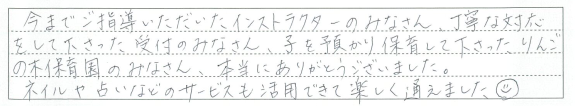 今までご指導いただいたインストラクターのみなさん、丁寧な対応
をして下さった受付のみなさん、子を預かり保育して下さったりんご
の木保育園のみなさん、本当にありがとうございました。
ネイルや占いなどのサービスも活用できて楽しく通えました